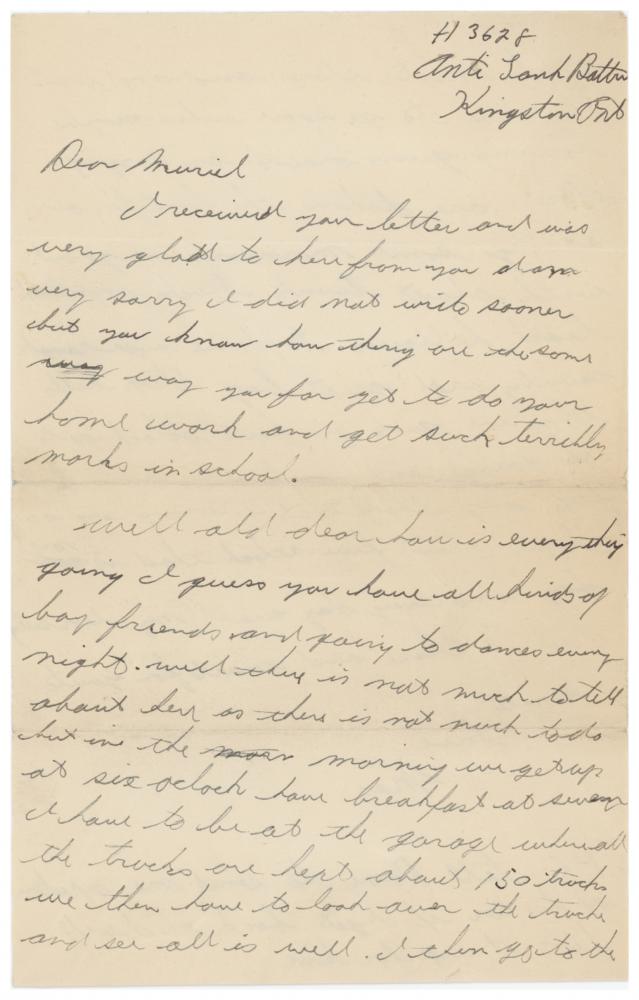 H 3628
Anti Tank Batt
Kingston Ont
Dear Muriel
I received your letter and was
very glad to here from you
very sorry I did not write sooner
but you know how thing are the same
way you for get to do your
home work and get such terribly
marks in school.
well old dear how is everything
going I guess you have all kinds of
boy friends and going to dances every
night. well there is not much to tell
about here as there is not much to do
but in the morning we get up
at six oclock have breakfast at seven
I have to be at the garage where all
the trucks are kept about 150 trucks
we then have to look over the trucks
and see all is well. I then go to the